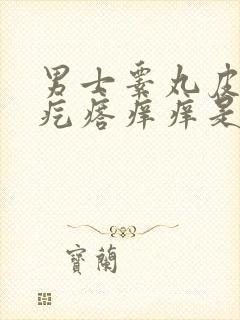 男士睾丸皮
疙瘩痒痒是
寳蘭